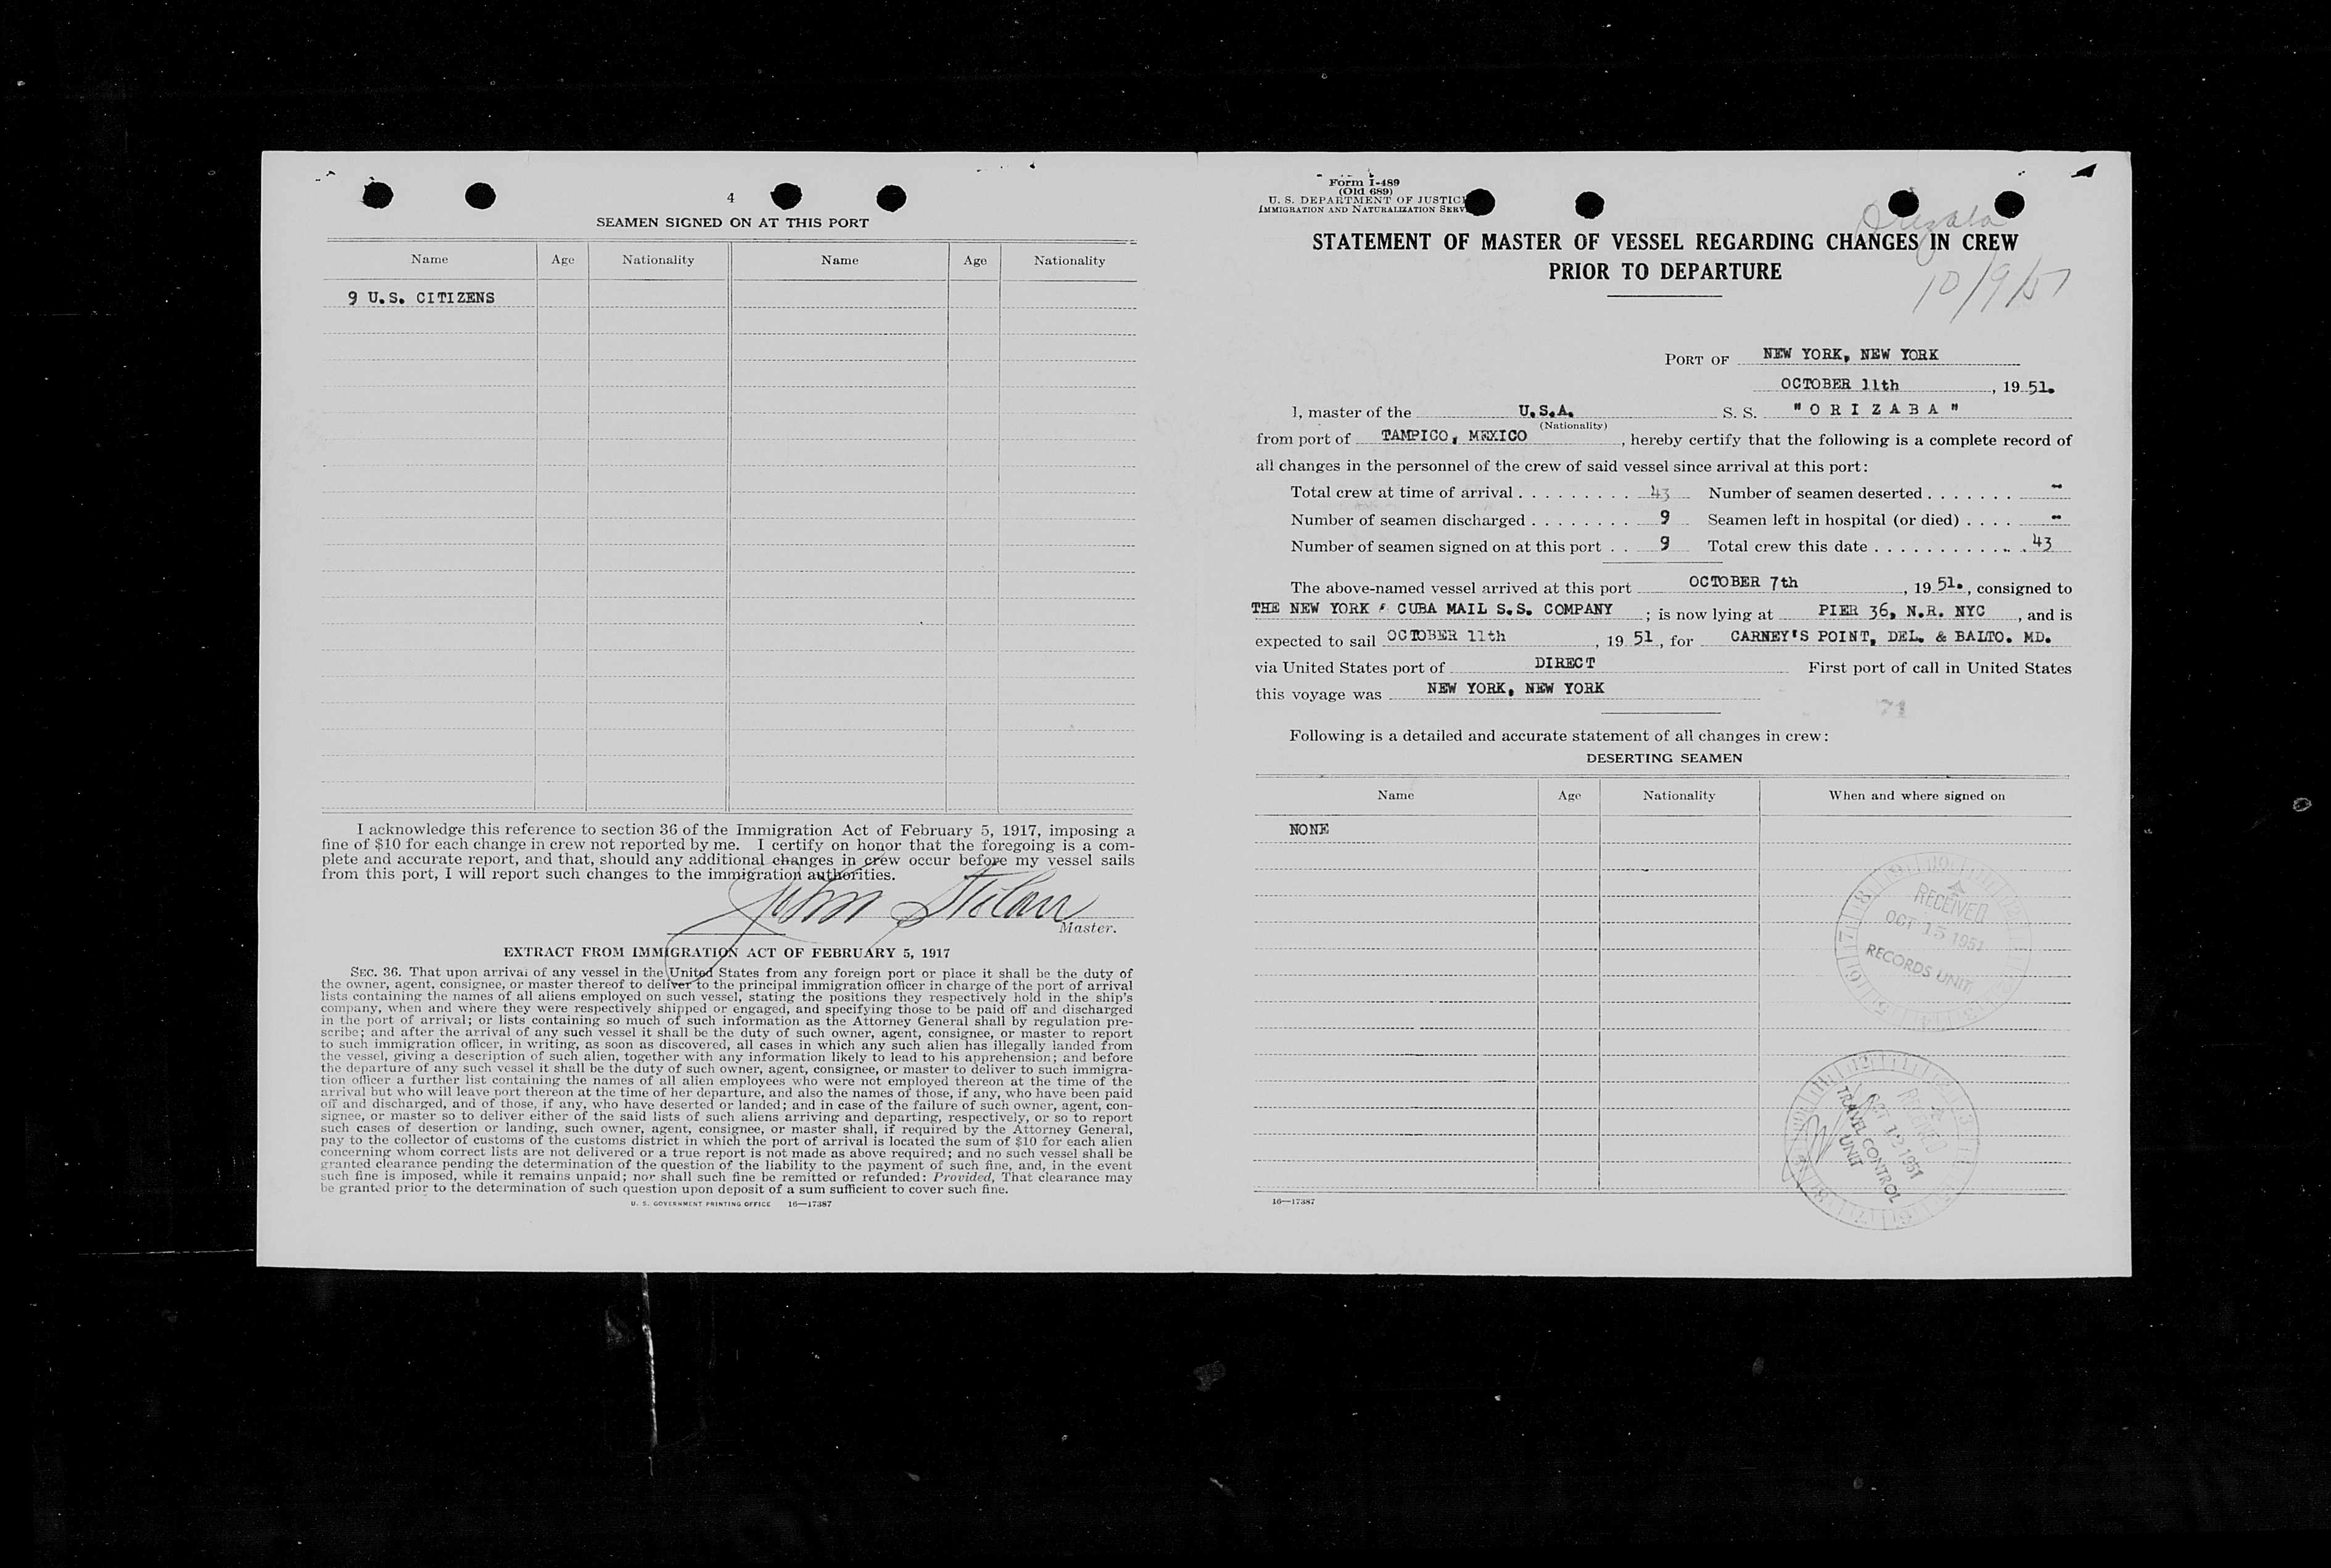 4
SEAMEN SIGNED ON AT THIS PORT
Name Age Nationality Name Age Nationality
9 U.S. CITIZENS
I acknowledge this reference to section 36 of the Immigration Act of February 5, 1917, imposing a
fine of $10 for each change in crew not reported by me. I certify on honor that the foregoing is a com-
plete and accurate report, and that, should any additional changes in crew occur before my vessel sails
from this port, I will report such changes to the immigration authorities.
John
Master.
EXTRACT FROM IMMIGRATION ACT OF FEBRUARY 5, 1917
SEC. 36. That upon arrival of any vessel in the United States from any foreign port or place it shall be the duty of
the owner, agent, consignee, or master thereof to deliver to the principal immigration officer in charge of the port of arrival
lists containing the names of all aliens employed on such vessel, stating the positions they respectively hold in the ship's
company, when and where they were respectively shipped or engaged, and specifying those to be paid off and discharged
in the port of arrival; or lists containing so much of such information as the Attorney General shall by regulation pre-
scribe; and after the arrival of any such vessel it shall be the duty of such owner, agent, consignee, or master to report
to such immigration officer, in writing, as soon as discovered, all cases in which any such alien has illegally landed from
the vessel, giving a description of such alien, together with any information likely to lead to his apprehension; and before
the departure of any such vessel it shall be the duty of such owner, agent, consignee, or master to deliver to such immigra-
tion officer a further list containing the names of all alien employees who were not employed thereon at the time of the
arrival but who will leave port thereon at the time of her departure, and also the names of those, if any, who have been paid
off and discharged, and of those, if any, who have deserted or landed; and in case of the failure of such owner, agent, con-
signee, or master so to deliver either of the said lists of such aliens arriving and departing, respectively, or so to report
such cases of desertion or landing, such owner, agent, consignee, or master shall, if required by the Attorney General,
pay to the collector of customs of the customs district in which the port of arrival is located the sum of $10 for each alien
concerning whom correct lists are not delivered or a true report is not made as above required; and no such vessel shall be
granted clearance pending the determination of the question of the liability to the payment of such fine, and, in the event
such fine is imposed, while it remains unpaid; nor shall such fine be remitted or refunded: Provided, That clearance may
be granted prior to the determination of such question upon deposit of a sum sufficient to cover such fine.
U. S. GOVERNMENT PRINTING OFFICE 16—17387
Form I-489
(Old 689)
U. S. DEPARTMENT OF JUSTIC
IMMIGRATION AND NATURALIZATION SERV
Orizaba
STATEMENT OF MASTER OF VESSEL REGARDING CHANGES IN CREW
PRIOR TO DEPARTURE
10/9/51
PORT OF NEW YORK, NEW YORK
OCTOBER 11th, 19 51.
I, master of the U.S.A. S. S. "O R I Z A B A"
(Nationality)
from port of TAMPICO, MEXICO, hereby certify that the following is a complete record of
all changes in the personnel of the crew of said vessel since arrival at this port:
Total crew at time of arrival 43 Number of seamen deserted -
Number of seamen discharged 9 Seamen left in hospital (or died) -
Number of seamen signed on at this port 9 Total crew this date 43
The above-named vessel arrived at this port OCTOBER 7th, 19 51., consigned to
THE NEW YORK & CUBA MAIL S.S. COMPANY; is now lying at PIER 36, N.R. NYC, and is
expected to sail OCTOBER 11th, 19 51, for CARNEY'S POINT, DEL. & BALTO. MD.
via United States port of DIRECT First port of call in United States
this voyage was NEW YORK, NEW YORK
71
Following is a detailed and accurate statement of all changes in crew:
DESERTING SEAMEN
Name Age Nationality When and where signed on
NONE
RECEIVED
OCT 15 1951
RECORDS UNIT
RECEIVED
OCT 12 1951
TRAVEL CONTROL
UNIT
16—17387